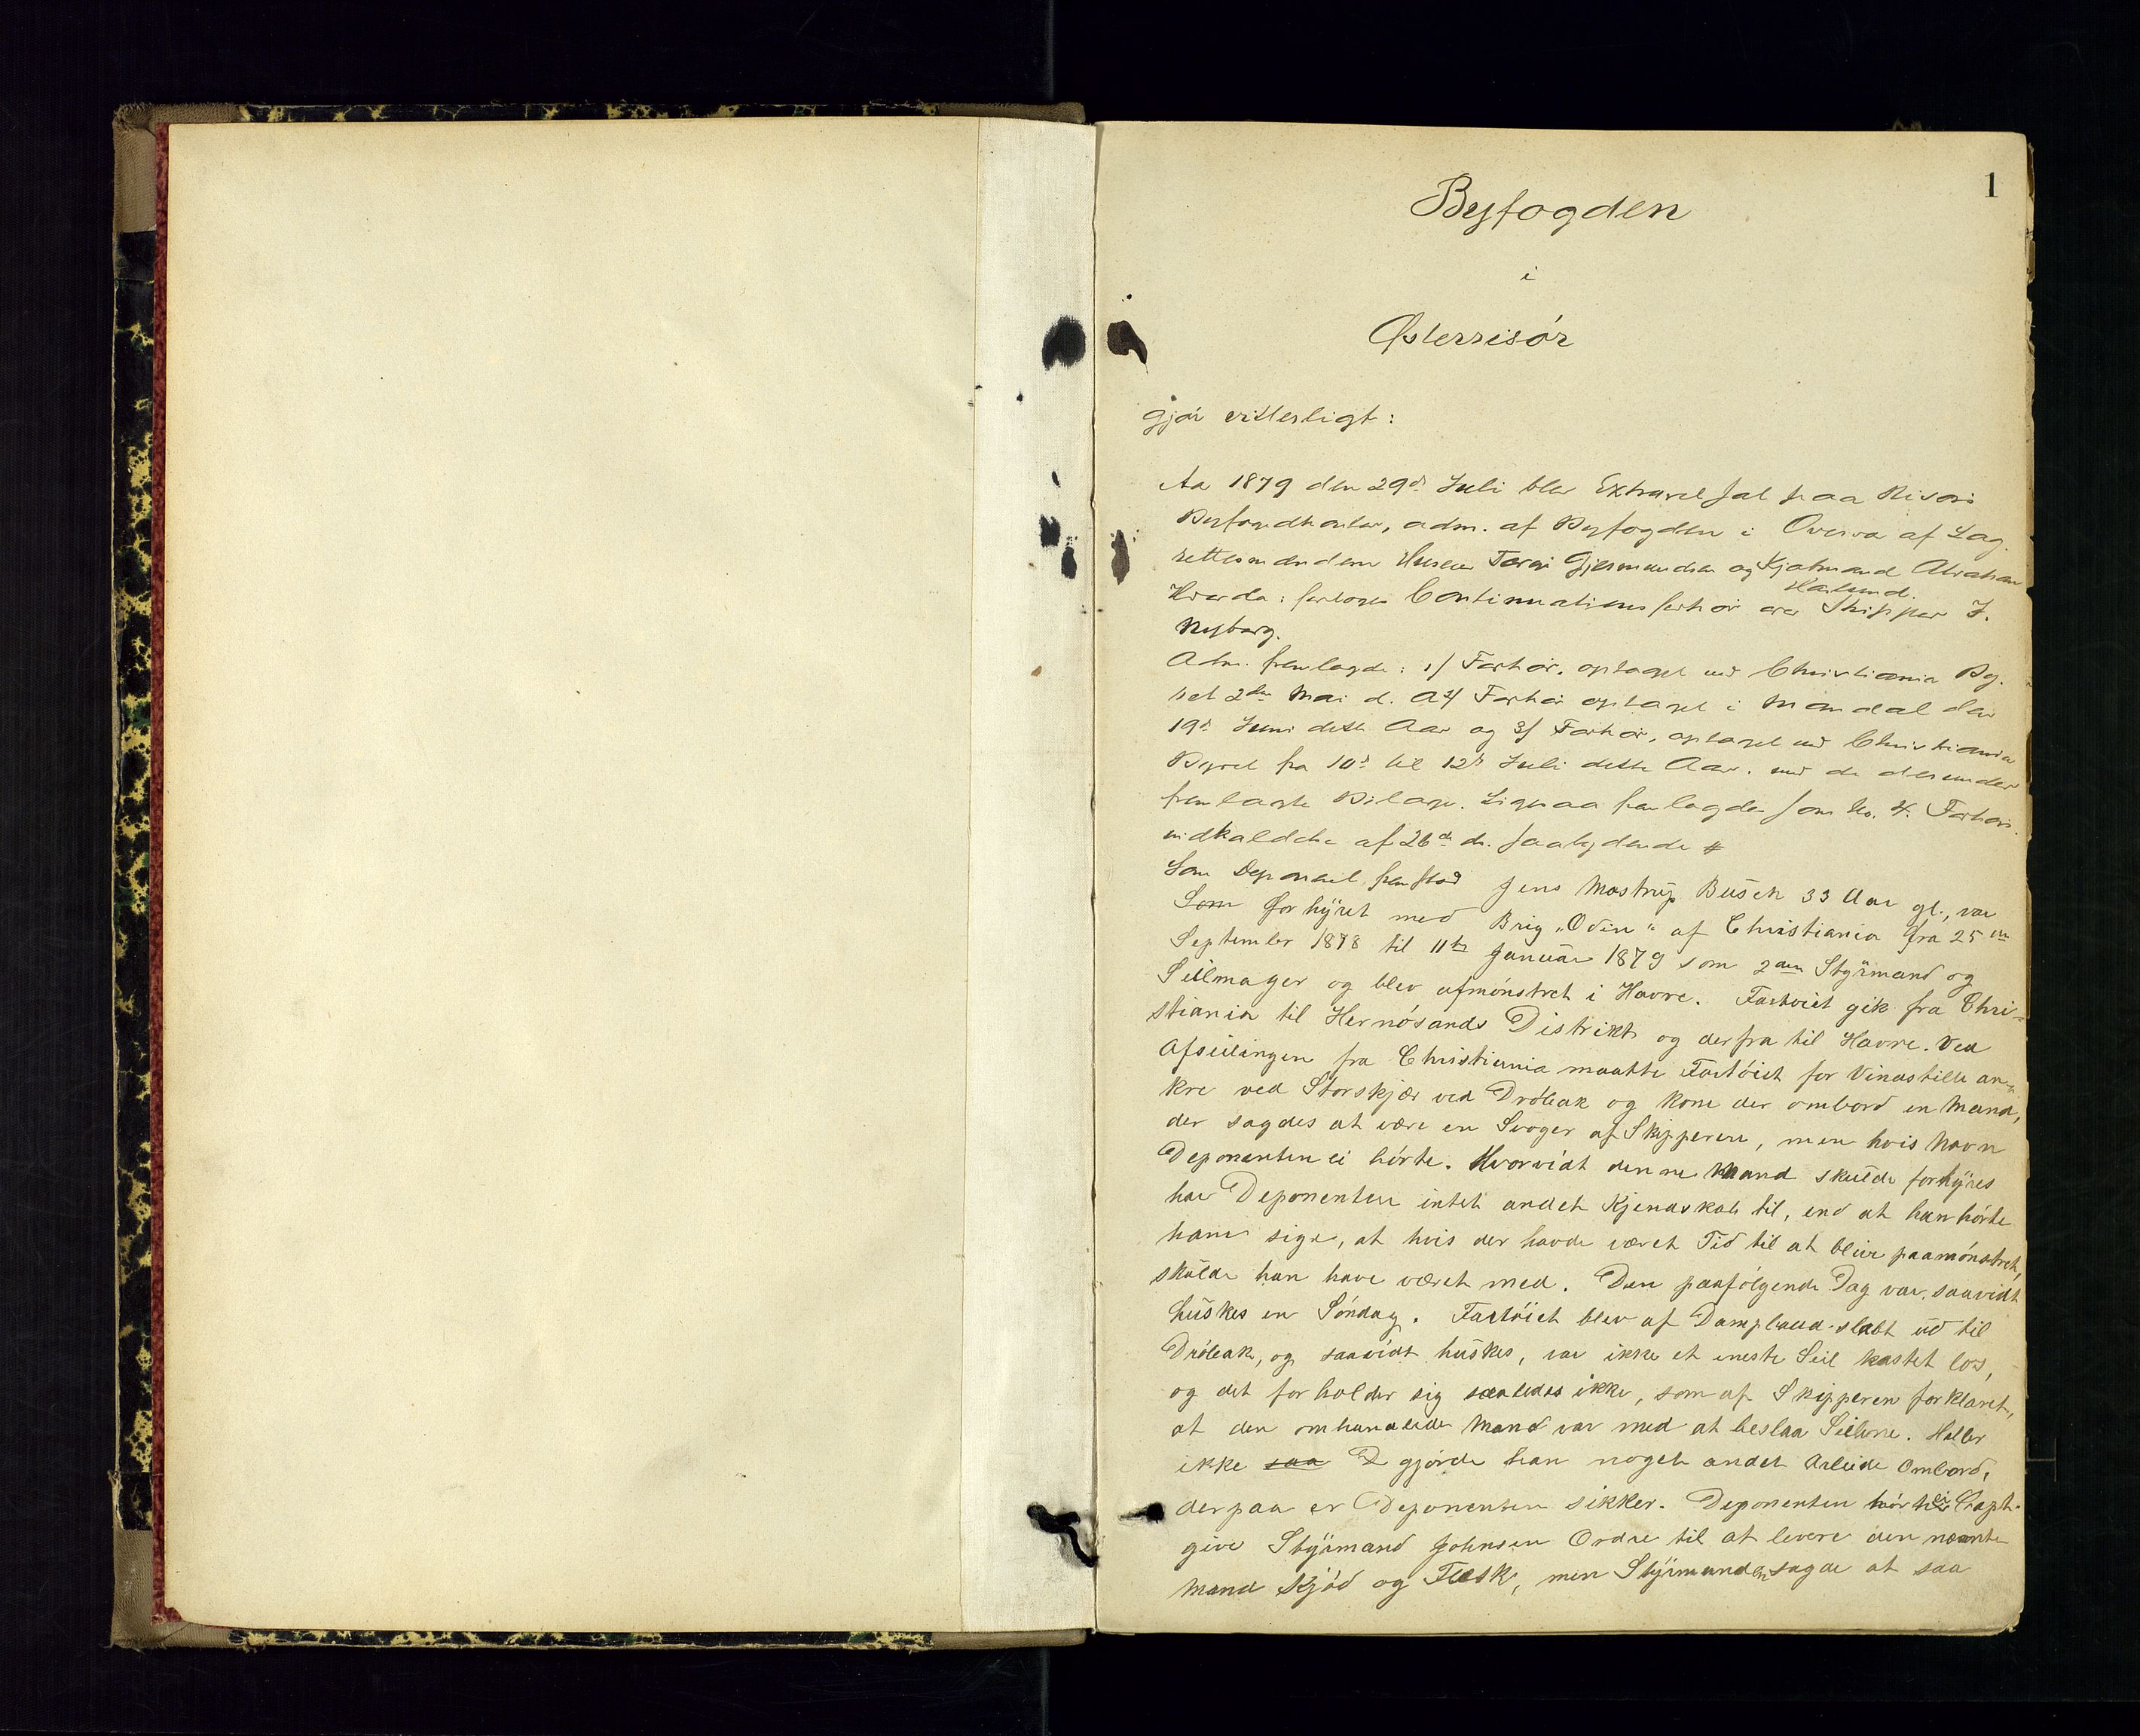 1
Byfogden
i
Østerrisör
gjör vitterligt:
Aa 1879 den 29de Juli blev Extraret sat paa Risørs
Byfogedkontor, adm. af Byfogden i Overvær af Lag-
rettesmændene Huseier Terje Gjermundsen og Kjøbmand Abraham
Haslund.
Hvorda: foretoges Continuationsforhør over Skipper J.
Nyborg.
Adm. fremlagde: 1/ Forhør, optaget ved Christiania By-
ret 2den Mai d. A 2/ Forhør optaget i Mandal den
19de Juni dette Aar og 3/ Forhør, optaget ved Christiania
Byret fra 10de til 12te Juli dette Aar. med de derunder
fremlagte Bilage. Ligesaa fremlagdes som No. 4. Forhørs-
indkaldelse af 26de ds. saalydende #
Som Deponent fremstod Jens Mostrup Busch 33 Aar gl., var
Som forhyret med Brig "Odin" af Christiania fra 25de
September 1878 til 11te Januar 1879 som 2den Styrmand og
Seilmager og blev afmönstret i Havre. Fartöiet gik fra Chri-
stiania til Hernösands Distrikt og derfra til Havre. Ved
Afseilingen fra Christiania maatte Fartöiet for Vindstille an-
kre ved Storskjær ved Dröbak og kom der ombord en Mand,
der sagdes at være en Svoger af Skipperen, men hvis Navn
Deponenten ei hörte. Hvorvidt denne Mand skulde forhyres
har Deponenten intet andet Kjendskab til, end at han hörte
ham sige, at hvis der havde været Tid til at blive paamönstret,
skulde han have været med. Den paafölgende Dag var, saavidt
huskes en Söndag. Fartöiet blev af Dampbaad slæbt ud til
Dröbak, og saavidt huskes, var ikke et eneste Seil kastet los,
og det forholder sig saaledes ikke, som af Skipperen forklaret,
at den omhandlede Mand var med at beslaa Seilene. Heller
ikke saa D gjorde han noget andet Arbeide Ombord,
derpaa er Deponenten sikker. Deponenten hörte ei Capt.
give Styrmand Johnsen Ordre til at levere den nævnte
Mand Kjöd og Flesk, men Styrmanden sagde at saa